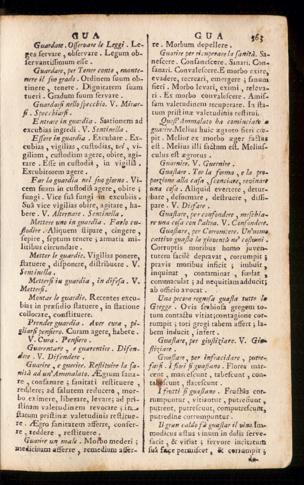 GUA GUA 363
Guardare. Osservare le Leggi. Leges servare, observare. Legum observantissimum esse.
Guardare, per Tener conto, mantenere il suo grado. Ordinem suum obtinere, tenere. Dignitatem suam tueri. Gradum suum servare.
Guardarsi nello specchio. V. Mirarsi. Specchiarsi.
Entrare in guardia. Stationem ad excubias ingredi. V. Sentinella.
Essere in guardia. Excubare. Excubias, vigilias, custodias, vel, vigiliam, custodiam agere, obire, agitare. Esse in custodia, in vigilia. Excubitorem agere.
Far la guardia nel suo giorno. Vicem suam in custodia agere, obire; fungi. Vice sua fungi in excubiis. Sua vice vigilias obire, agitare, habere. V. Alternare. Sentinella.
Mettere uno in guardia. Farlo custodire. Aliquem stipare, cingere, sepire, septum tenere; armatis militibus circundare.
Metter le guardie. Vigilias ponere, statuere, disponere, distribuere. V. Sentinella.
Mettersi in guardia, in difesa. V. Mettersi.
Montar le guardie. Recentes excubias in præsidio statuere, in statione collocare, constituere.
Prender guardia. Aver cura, pigliarsi pensiero. Curam agere, habere. V. Cura. Pensiero.
Guarentare, e guarentire. Difendere. V. Difendere.
Guarire, e guerire. Restituire la sanità ad uno Ammalato. Ægrum sanare, consanare; sanitati restituere, reddere; ad salutem reducere, morbo eximere, liberare, levare; ad pristinam valetudinem revocare; in statum pristinæ valetudinis restituere. Ægro sanitatem asserre, conserre, reddere, restituere.
Guarire un male. Morbo mederi; medicinam afferre, remedium afferre.
Morbum depellere.
Guarire per ricuperare la sanità. Sanescere. Consanescere. Sanari. Consanari. Convalescere. E morbo exire, evadere, recreari, emergere; sanum fieri. Morbo levari, eximi, relevari. Ex morbo convalescere. Amissam valetudinem recuperare. In statum pristinæ valetudinis restitui.
Quest'ammalato ha cominciato a guarire. Melius huic ægroto fieri cœpit. Melior ex morbo æger factus est. Melius illi factum est. Meliusculus est ægrotus.
Guarnire. V. Guernire.
Guastare. Tor la forma, e la proporzione alla cosa, sconciare, rovinare una cosa. Aliquid evertere, deturbare, deformare, destruere, dissipare. V. Disfare.
Guastare, per confondere, mischiare una cosa con l'altra. V. Confondere.
Guastare, per Corrompere. Un'uomo cattivo guasta la gioventù ne' costumi. Corruptis moribus homo juventutem facile depravat, corrumpit; pravis moribus inficit; imbuit, inquinat, contaminat, fœdat, commaculat; ad nequitiam adducit; ab officio avocat.
Una pecora rognosa guasta tutto il Gregge. Ovis scabiosa gregem totum contactu vitiat; contagione corrumpit; toti gregi tabem affert; labem inducit, infert.
Guastare, per giustiziare. V. Giustiziare.
Guastare, per infracidare, putrefarsi. I fiori si guastano. Flores marcent, marcescunt, tabescunt, contabescunt, flaccescunt.
I frutti si guastano. Fructus corrumpuntur, vitiantur, putrescunt, putrent, putrescunt, computrescunt, putredine corrumpuntur.
Il gran caldo fà guastar il vino. Immodicus æstus vinum in doliis servefacit, & vitiat; fervore incitatum suâ fæce permiscet, & corrumpit;